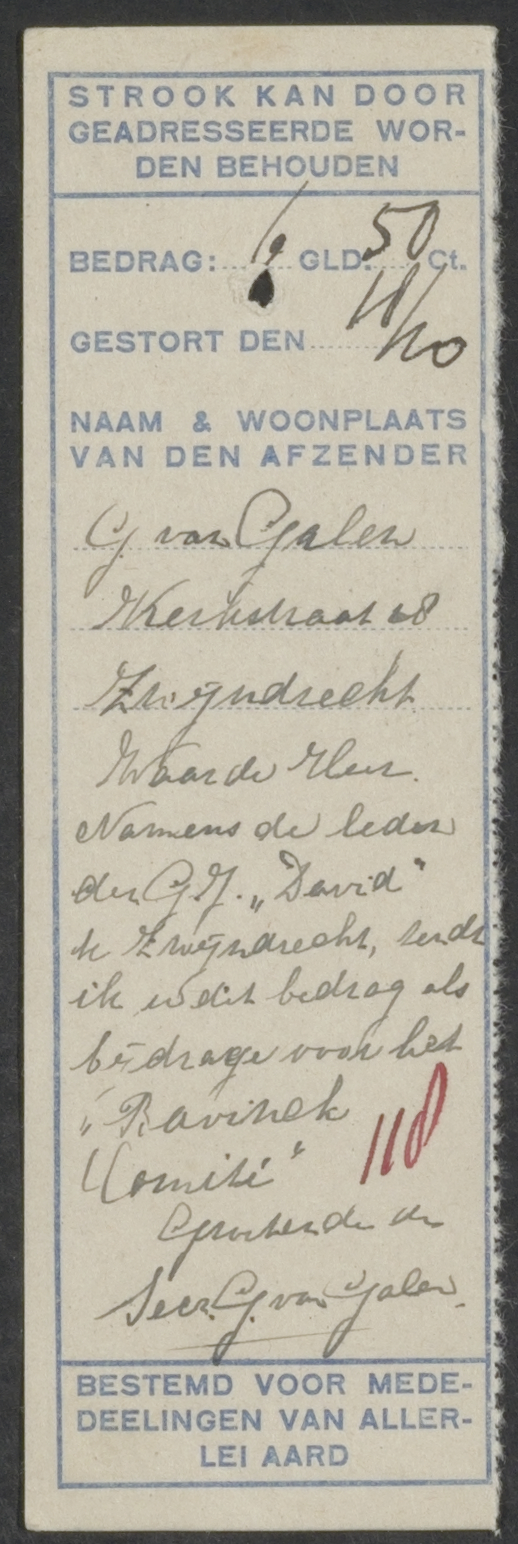 STROOK KAN DOOR
GEADRESSEERDE WOR-
DEN BEHOUDEN
BEDRAG: GLD. 50 Ct.
GESTORT DEN 18/10
NAAM & WOONPLAATS
VAN DEN AFZENDER
G van Galen
Kerkstraat 68
Zwijndrecht
Waarde Heer.
Namens de leden
der G.J. „David"
te Zwijndrecht, sendt
ik u dit bedrag als
bijdrage voor het
„Ravinek
Comité"
118
Groetende de
Secr. G. van Galen.
BESTEMD VOOR MEDE-
DEELINGEN VAN ALLER-
LEI AARD